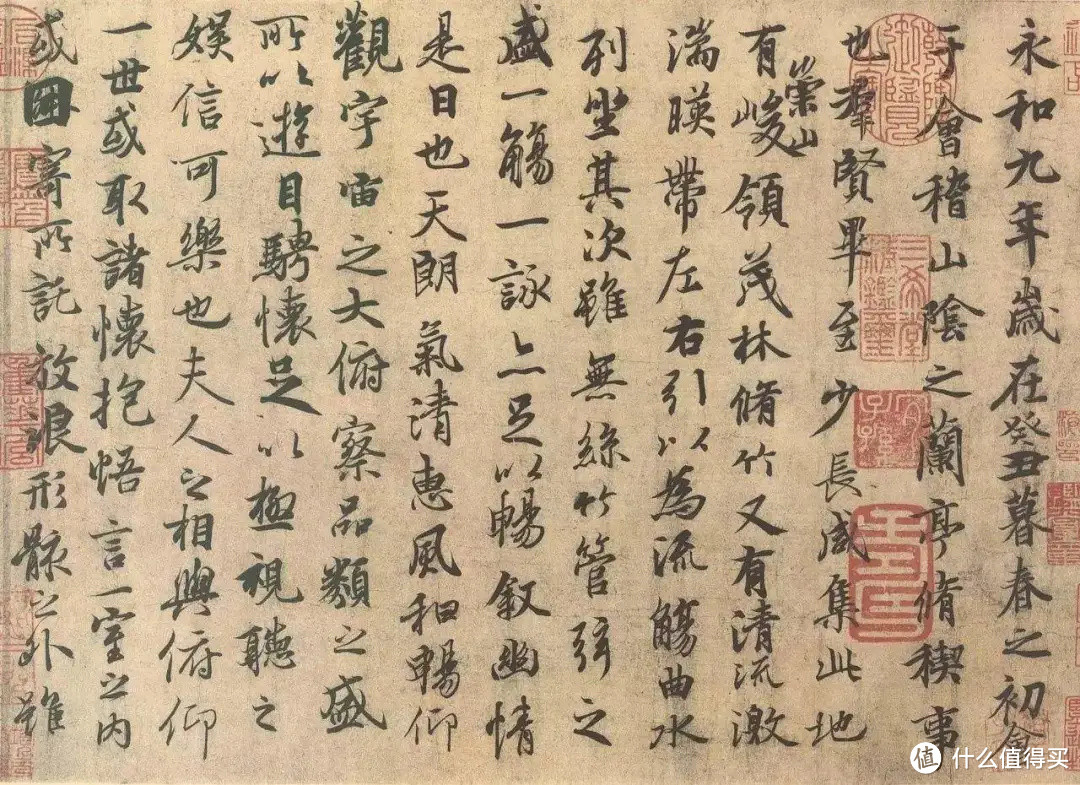 永和九年歲在癸丑暮春之初會
于會稽山陰之蘭亭脩稧事
也羣賢畢至少長咸集此地
有崇山峻領茂林脩竹又有清流激
湍暎帶左右引以為流觴曲水
列坐其次雖無絲竹管弦之
盛一觴一詠亦足以暢敘幽情
是日也天朗氣清惠風和暢仰
觀宇宙之大俯察品類之盛
所以遊目騁懷足以極視聽之
娛信可樂也夫人之相與俯仰
一世或取諸懷抱悟言一室之內
或因寄所託放浪形骸之外雖
三希堂
宜子孫
值 什么值得买